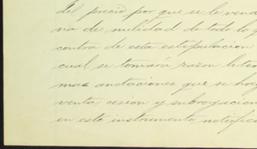 del precio por que se le vend
ria de nulidad de todo lo q
contra de esta estipulacion
cual se tomará razon lite
mas anotaciones que se hag
venta cesion y subrogacion
en este instrumento notific